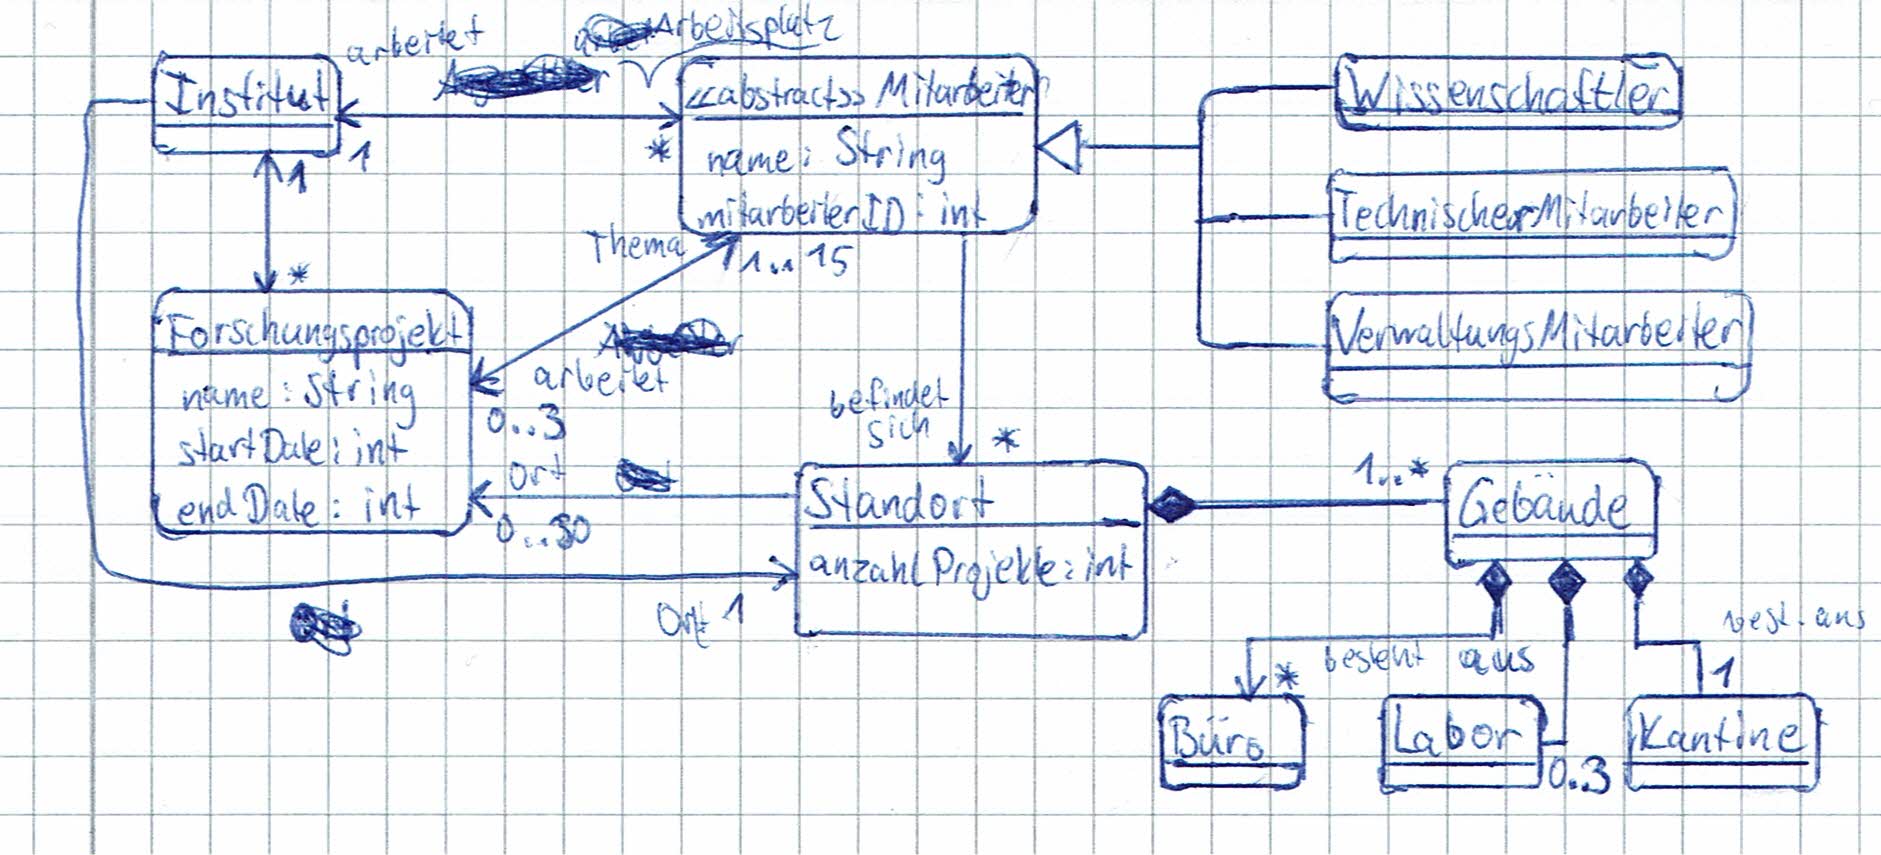 arbeitet
Arbeitsplatz
Institut
1
*
<<abstract>> Mitarbeiter
name: String
mitarbeiterID: int
Wissenschaftler
TechnischerMitarbeiter
VerwaltungsMitarbeiter
1
*
Thema
1..15
Forschungsprojekt
name: String
startDate: int
endDate: int
arbeitet
0..3
Ort
0..30
befindet
sich
*
Standort
anzahlProjekte: int
Ort 1
1..*
Gebäude
besteht aus
*
best. aus
1
Büro
Labor
0..3
Kantine